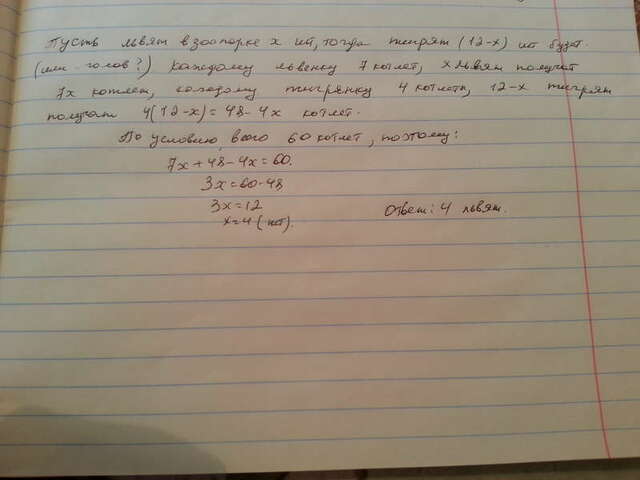 Пусть львят в зоопарке x шт, тогда тигрят (12-x) шт будет.
(или голов?) Каждому львенку 7 котлет, x львят получат
7x котлет, каждому тигренку 4 котлеты, 12-x тигрят
получат 4(12-x)=48-4x котлет.
По условию, всего 60 котлет, поэтому:
7x+48-4x=60.
3x=60-48
3x=12
x=4 (шт).
Ответ: 4 львят.